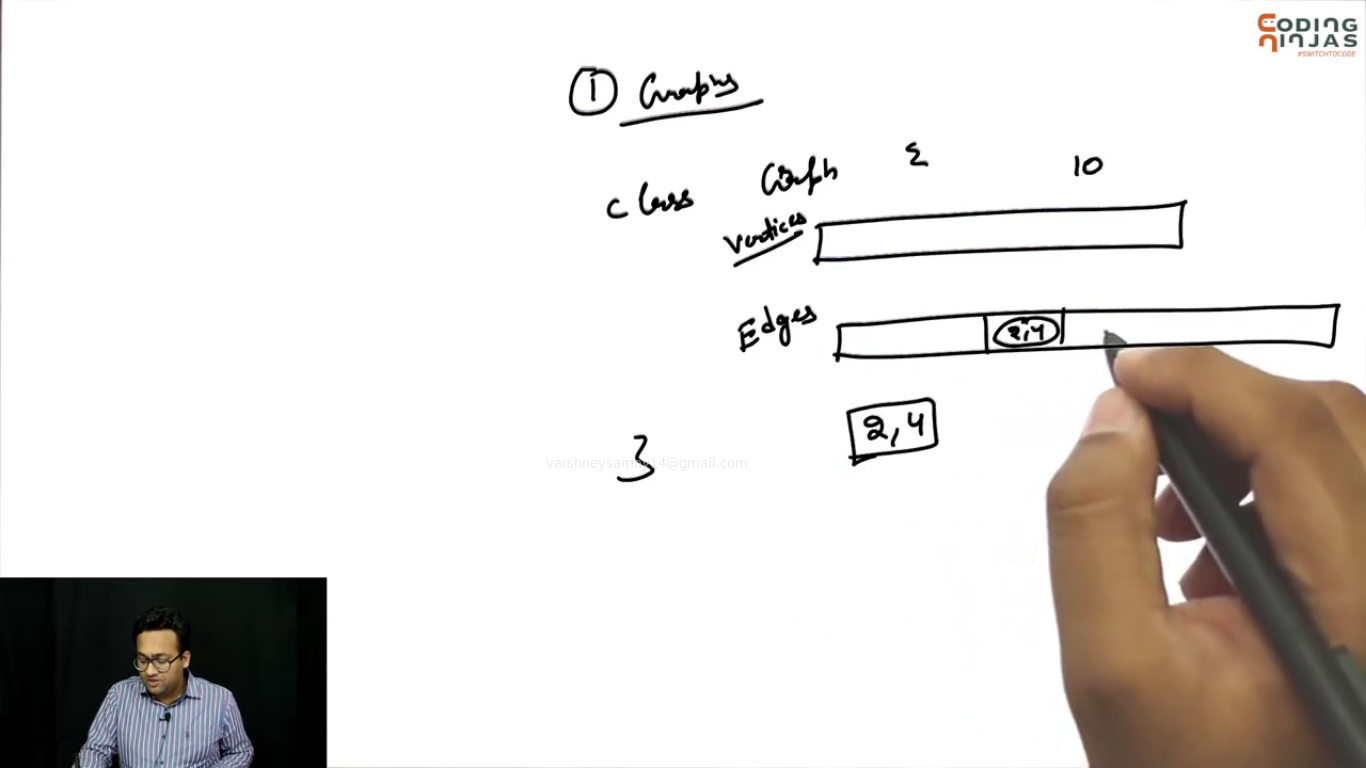 CODING
NINJAS
#SWITCHTOCODE
① Graphs
class Graph {
10
Vertices
Edges
2,4
2,4
}
varshneysamay14@gmail.com